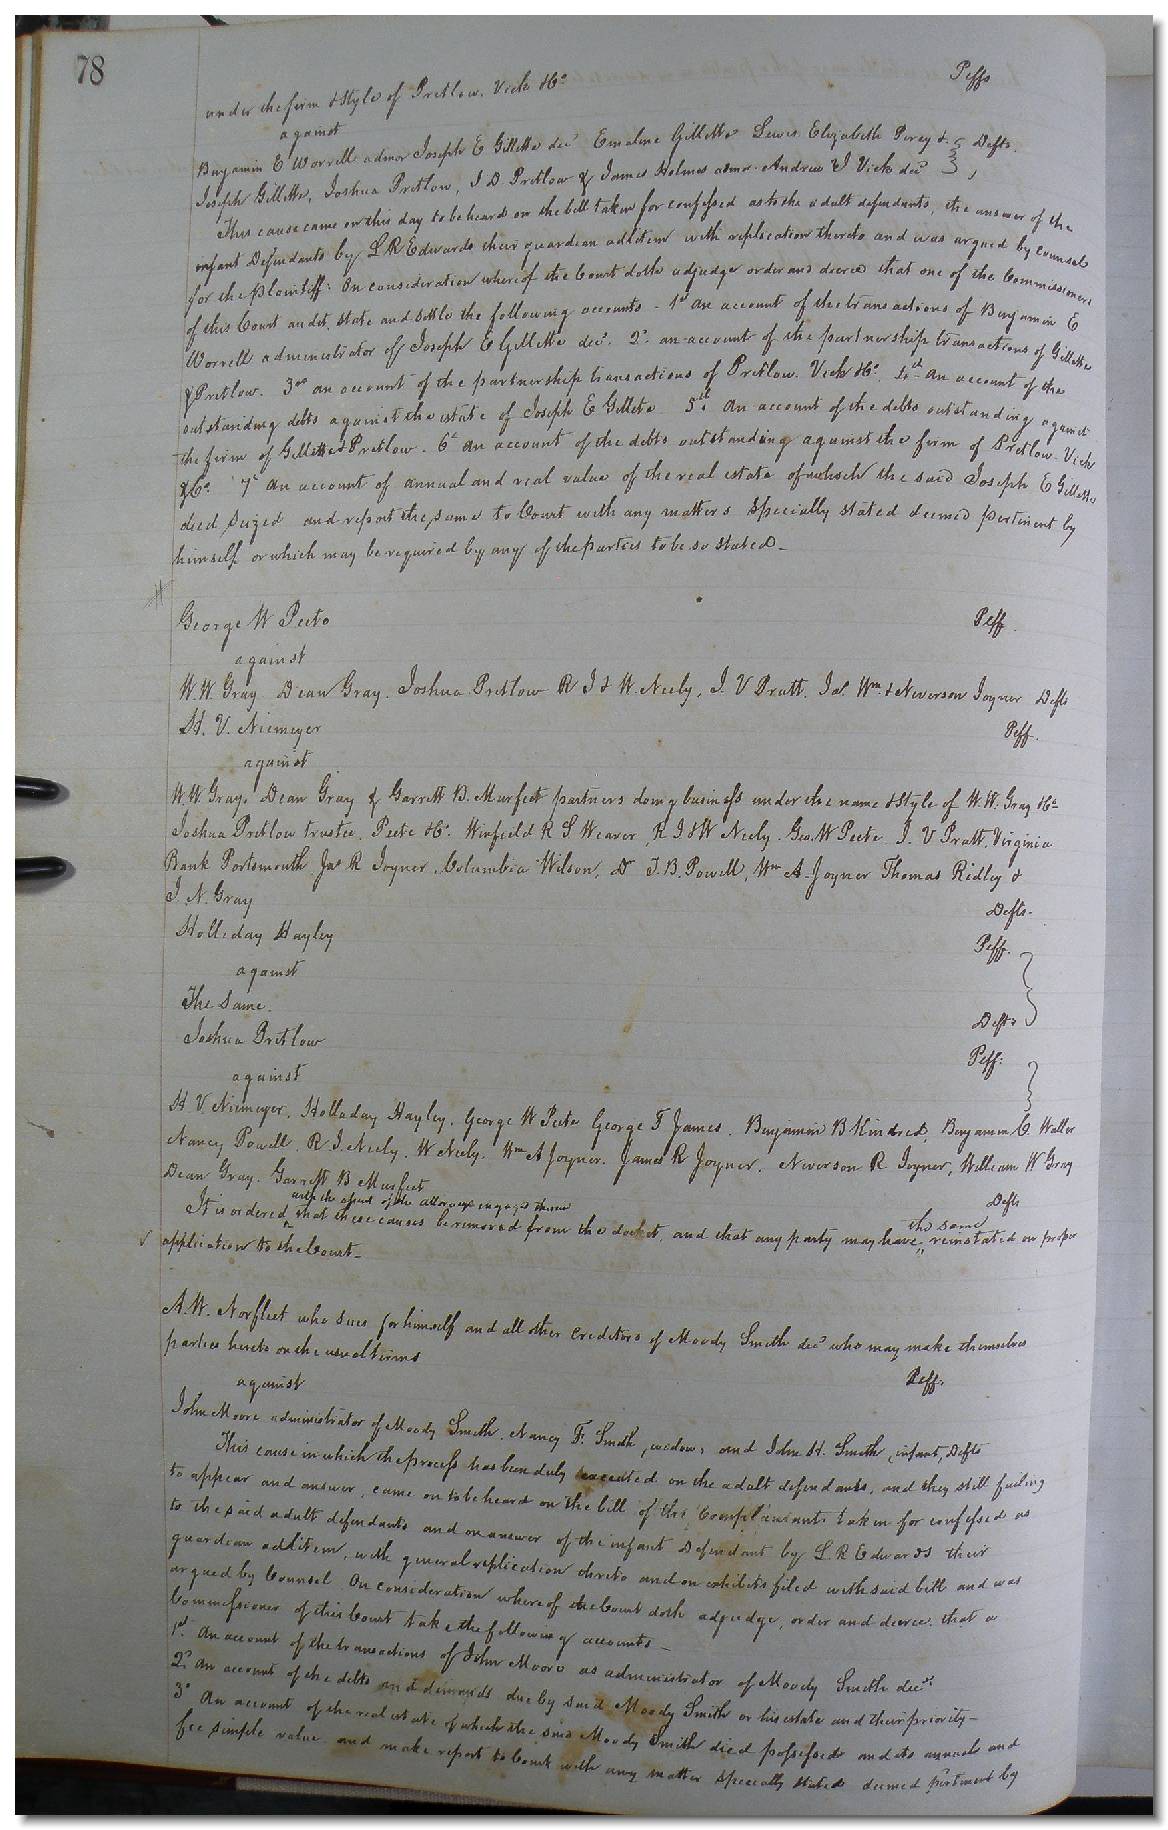 78
Peffs
under the firm & Style of Pretlow, Vick & Co
against
Benjamin E Worrell admor Joseph E Gillette decd Emeline Gillette Lewis Elizabeth Percy & Defts.
Joseph Gillette, Joshua Pretlow, J D Pretlow & James Holmes admr Andrew J Vick decd
This cause came on this day to be heard on the bill taken for confessed as to the adult defendants, the answer of the
infant Defendants by L R Edwards their guardian adlitem with replication thereto and was argued by counsel
for the plaintiff: On consideration whereof the Court doth adjudge order and decree that one of the Commissioners
of this Court audit, state and settle the following accounts - 1st an account of the transactions of Benjamin E
Worrell administrator of Joseph E Gillette decd. 2d an account of the partnership transactions of Gillette
& Pretlow. 3rd an account of the partnership transactions of Pretlow. Vick & Co. 4th an account of the
outstanding debts against the estate of Joseph E Gillette 5th An account of the debts outstanding against
the firm of Gillette & Pretlow. 6th an account of the debts outstanding against the firm of Pretlow. Vick
& Co. 7th An account of annual and real value of the real estate of which the said Joseph E Gillette
died seized and report the same to Court with any matters specially stated deemed pertinent by
himself or which may be required by any of the parties to be so stated -
George W Peete Peff.
against
W. W. Gray. Dean Gray. Joshua Pretlow R J & W. Neely, J. V Pratt. Jas. Wm. & Neverson Joyner Defts
H. V. Niemeyer Peff.
against
W. W Gray, Dean Gray & Garrett B. Murfeet partners doing business under the name & Style of W. W. Gray & Co
Joshua Pretlow trustee, Peete & Co. Winfield R S Weaver, R J & W Neely. Geo. W Peete. J. V Pratt. Virginia
Bank Portsmouth Jas R Joyner, Columbia Wilson, Dr J. B. Powell, Wm A. Joyner Thomas Ridley &
J. N. Gray
Defts.
Holliday Hayley Peff.
against
The Same. Defts
Joshua Pretlow Peff.
against
H. V. Niemeyer, Holladay Hayley, George W Peete George F James, Benjamin B Kindred, Benjamin C. Waller
Nancy Powell, R. J. Neely. W Neely. Wm A Joyner. James R Joyner, Neverson R Joyner, William W Gray
Dean Gray. Garrett B Murfeet Defts
with the assent of the attorneys engaged therein
It is ordered that these causes be removed from the docket, and that any party may have the same reinstated on proper
application to the Court -
A. W. Norfleet who sues for himself and all other creditors of Moody Smith decd who may make themselves
parties hereto on the usual terms
against Peff.
John Moore administrator of Moody Smith, Nancy F. Smith, widow, and John H. Smith, infant, Defts
This cause in which the process has been duly executed on the adult defendants, and they still failing
to appear and answer, came on to be heard on the bill of this Complainant, taken for confessed as
to the said adult defendants and on answer of the infant Defendant by L. R Edwards their
guardian adlitem, with general replication thereto and on exhibits filed with said bill and was
argued by Counsel On consideration whereof the Court doth adjudge, order and decree that a
Commissioner of this Court take the following accounts -
1st An account of the transactions of John Moore as administrator of Moody Smith decd.
2d An account of the debts and demands due by said Moody Smith or his estate and their priority -
3d An account of the real estate of which the said Moody Smith died possessed and its annual and
fee simple value. and make report to Court with any matter specially stated deemed pertinent by